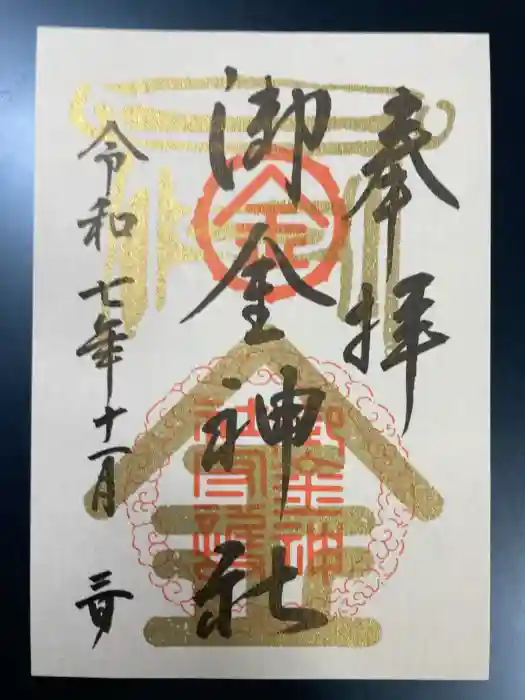 奉拝
御金神社
令和七年十一月三日
金
御金神